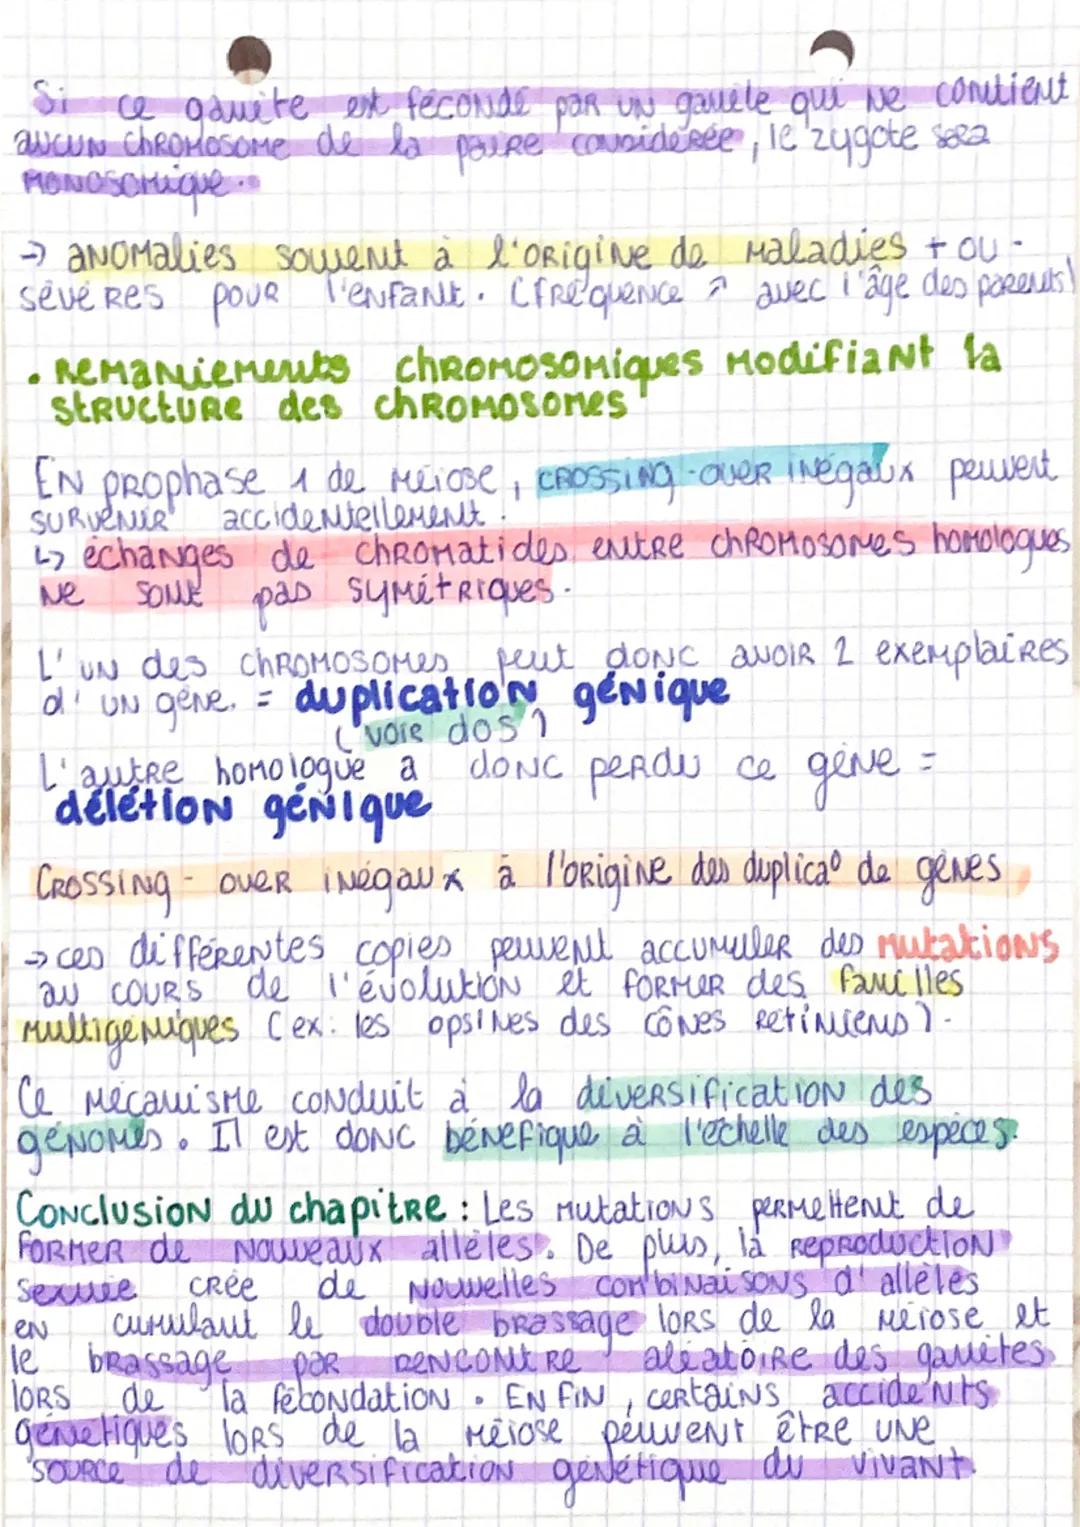 Si ce gamète est fécondé par un gamète qui ne contient
aucun chromosome de la paire considérée, le zygote sera
monosomique.
→ anomalies souvent à l'origine de maladies + ou -
sévères pour l'enfant. (fréquence ↗ avec l'âge des parents)
• Remaniements chromosomiques modifiant la
structure des chromosomes
En prophase 1 de méiose, crossing-over inégaux peuvent
survenir accidentellement.
↳ échanges de chromatides entre chromosomes homologues
ne sont pas symétriques.
L'un des chromosomes peut donc avoir 2 exemplaires
d'un gène. = duplication génique
(voir dos)
L'autre homologue a donc perdu ce gène =
délétion génique
Crossing-over inégaux à l'origine des duplica° de gènes,
→ ces différentes copies peuvent accumuler des mutations
au cours de l'évolution et former des familles
multigéniques (ex: les opsines des cônes rétiniens).
Ce mécanisme conduit à la diversification des
génomes. Il est donc bénéfique à l'échelle des espèces.
Conclusion du chapitre : Les mutations permettent de
former de nouveaux allèles. De plus, la reproduction
sexuée crée de nouvelles combinaisons d'allèles
en cumulant le double brassage lors de la méiose et
le brassage par rencontre aléatoire des gamètes
lors de la fécondation. Enfin, certains accidents
génétiques lors de la méiose peuvent être une
source de diversification génétique du vivant.